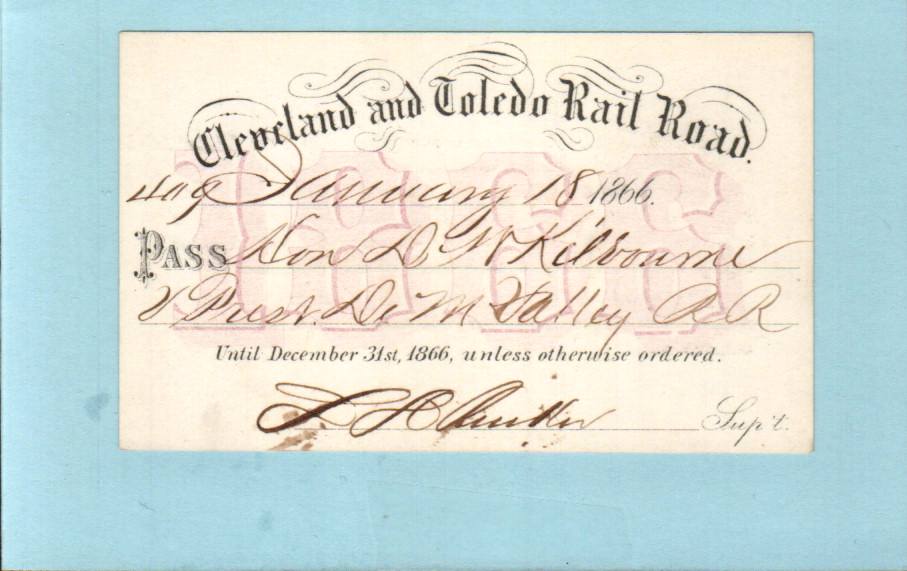 Cleveland and Toledo Rail Road.
409 January 18 1866.
PASS Hon D W Kilbourne
V Prest. De M Valley R R
Until December 31st, 1866, unless otherwise ordered.
Sup't.
1866